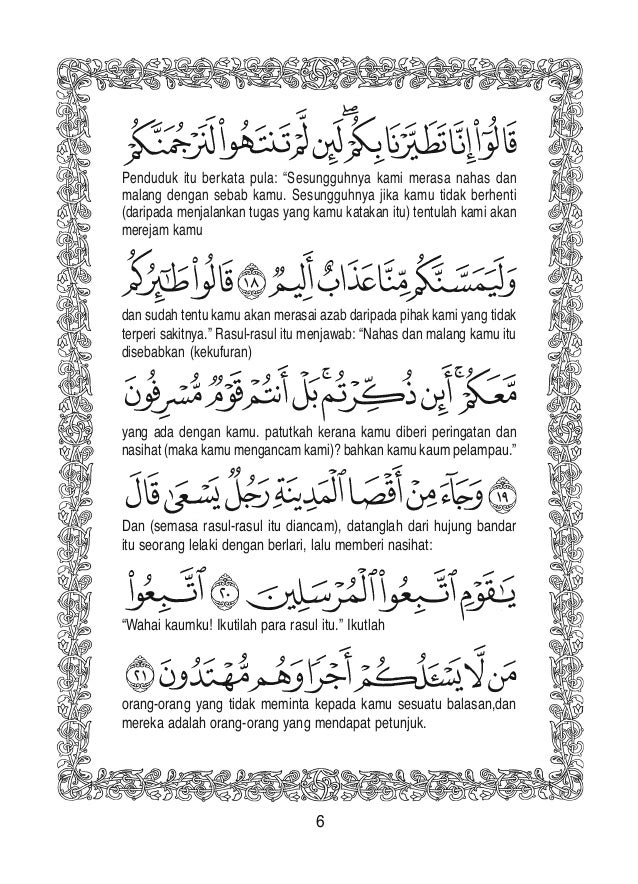 قَالُوٓا۟ إِنَّا تَطَيَّرْنَا بِكُمْ ۖ لَئِن لَّمْ تَنتَهُوا۟ لَنَرْجُمَنَّكُمْ
Penduduk itu berkata pula: “Sesungguhnya kami merasa nahas dan
malang dengan sebab kamu. Sesungguhnya jika kamu tidak berhenti
(daripada menjalankan tugas yang kamu katakan itu) tentulah kami akan
merejam kamu
وَلَيَمَسَّنَّكُم مِّنَّا عَذَابٌ أَلِيمٌ ١٨ قَالُوا۟ طَـٰٓئِرُكُم
dan sudah tentu kamu akan merasai azab daripada pihak kami yang tidak
terperi sakitnya.” Rasul-rasul itu menjawab: “Nahas dan malang kamu itu
disebabkan (kekufuran)
مَّعَكُمْ ۚ أَئِن ذُكِّرْتُم ۚ بَلْ أَنتُمْ قَوْمٌ مُّسْرِفُونَ
yang ada dengan kamu. patutkah kerana kamu diberi peringatan dan
nasihat (maka kamu mengancam kami)? bahkan kamu kaum pelampau.”
١٩ وَجَآءَ مِنْ أَقْصَا ٱلْمَدِينَةِ رَجُلٌ يَسْعَىٰ قَالَ
Dan (semasa rasul-rasul itu diancam), datanglah dari hujung bandar
itu seorang lelaki dengan berlari, lalu memberi nasihat:
يَـٰقَوْمِ ٱتَّبِعُوا۟ ٱلْمُرْسَلِينَ ٢٠ ٱتَّبِعُوا۟
“Wahai kaumku! Ikutilah para rasul itu.” Ikutlah
مَن لَّا يَسْـَٔلُكُمْ أَجْرًا وَهُم مُّهْتَدُونَ ٢١
orang-orang yang tidak meminta kepada kamu sesuatu balasan,dan
mereka adalah orang-orang yang mendapat petunjuk.
6